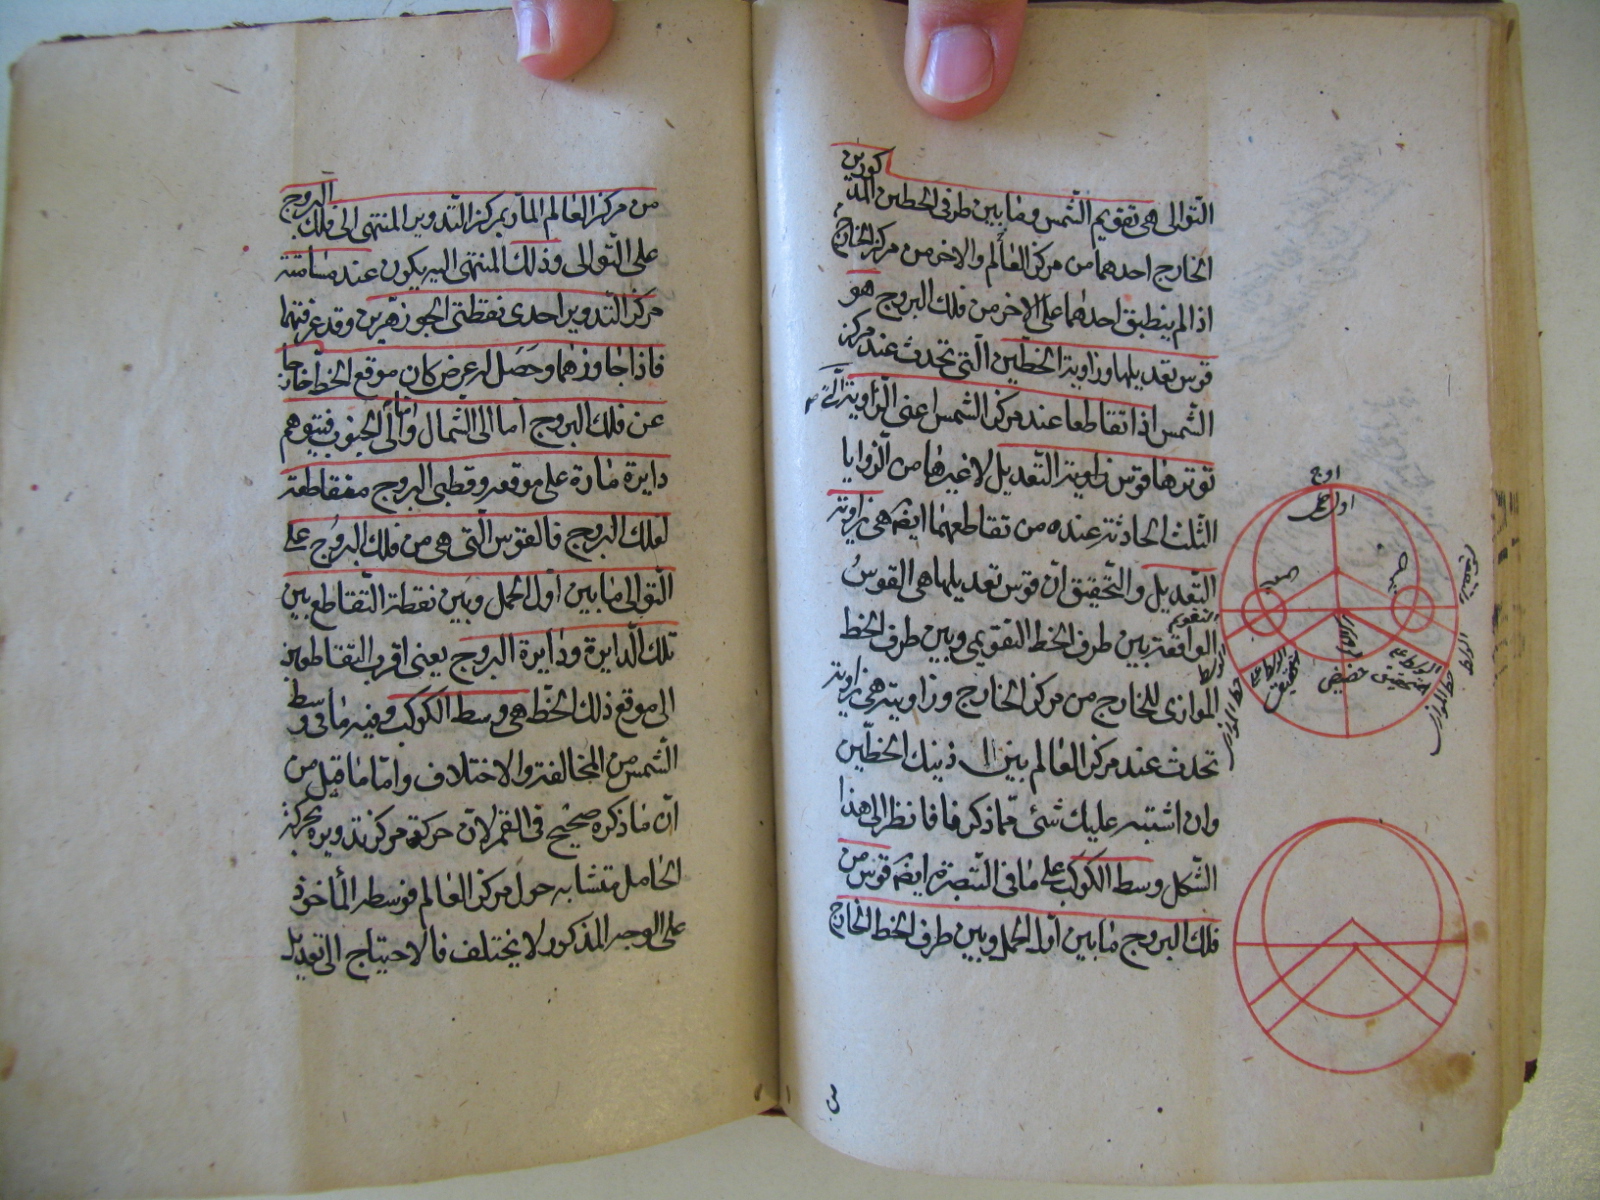 كورين
التوالى هى تقويم الشمس وما بين طرفى الخطين المذ
الخارج احدهما من مركز العالم والاخر من مركز الخارج
اذ لم ينطبق احدهما على الاخر من فلك البروج هو
قوس تعديلها وزاوية الخطين التى تحدث عند مركز
الشمس اذا تقاطعا عند مركز الشمس اعنى الزاوية التى
توترها قوس زاوية التعديل لا غيرها من الزوايا
الثلث الحادثة عنده من تقاطعهما ايضه هى زاوية
التعديل والتحقيق ان قوس تعديلها هى القوس
الواقعة بين طرف الخط التقويمى وبين طرف الخط
الموازى للخارج من مركز الخارج وزاويته هى زاوية
تحدث عند مركز العالم بين ذينك الخطين
وان اشتبه عليك شئ مما ذكر فانظر الى هذا
الشكل وسط الكوكب على ما فى التبصرة ايضه قوس من
فلك البروج ما بين اول الحمل وبين طرف الخط الخارج
اوج
اول حمل
حضيض
البروج
من مركز العالم المار بمركز التدوير المنتهى الى فلك
على التوالى وذلك المنتهى اليه يكون عند مسامتة
مركز التدوير احدى نقطتى الجوزهرين وقد عرفتهما
فاذا جاوزهما وحصل له عرض كان موقع الخط خارجا
عن فلك البروج اما الى الشمال واما الى الجنوب فيتوهم
دايرة مارة على موقعه وقطبى البروج متقاطعة
لفلك البروج فالقوس التى هى من فلك البروج على
التوالى ما بين اول الحمل وبين نقطة التقاطع بين
تلك الدايرة ودايرة البروج يعنى اقرب التقاطعين
الى موقع ذلك الخط هى وسط الكوكب وفيه ما فى وسط
الشمس من المخالفة والاختلاف واما ما قيل من
ان ما ذكره صحيح فى القمر لان حركة مركز تدويره بحركة
الحامل متشابه حول مركز العالم فوسطه المأخوذ
على الوجه المذكور لا يختلف فالاحتياج الى تعديل